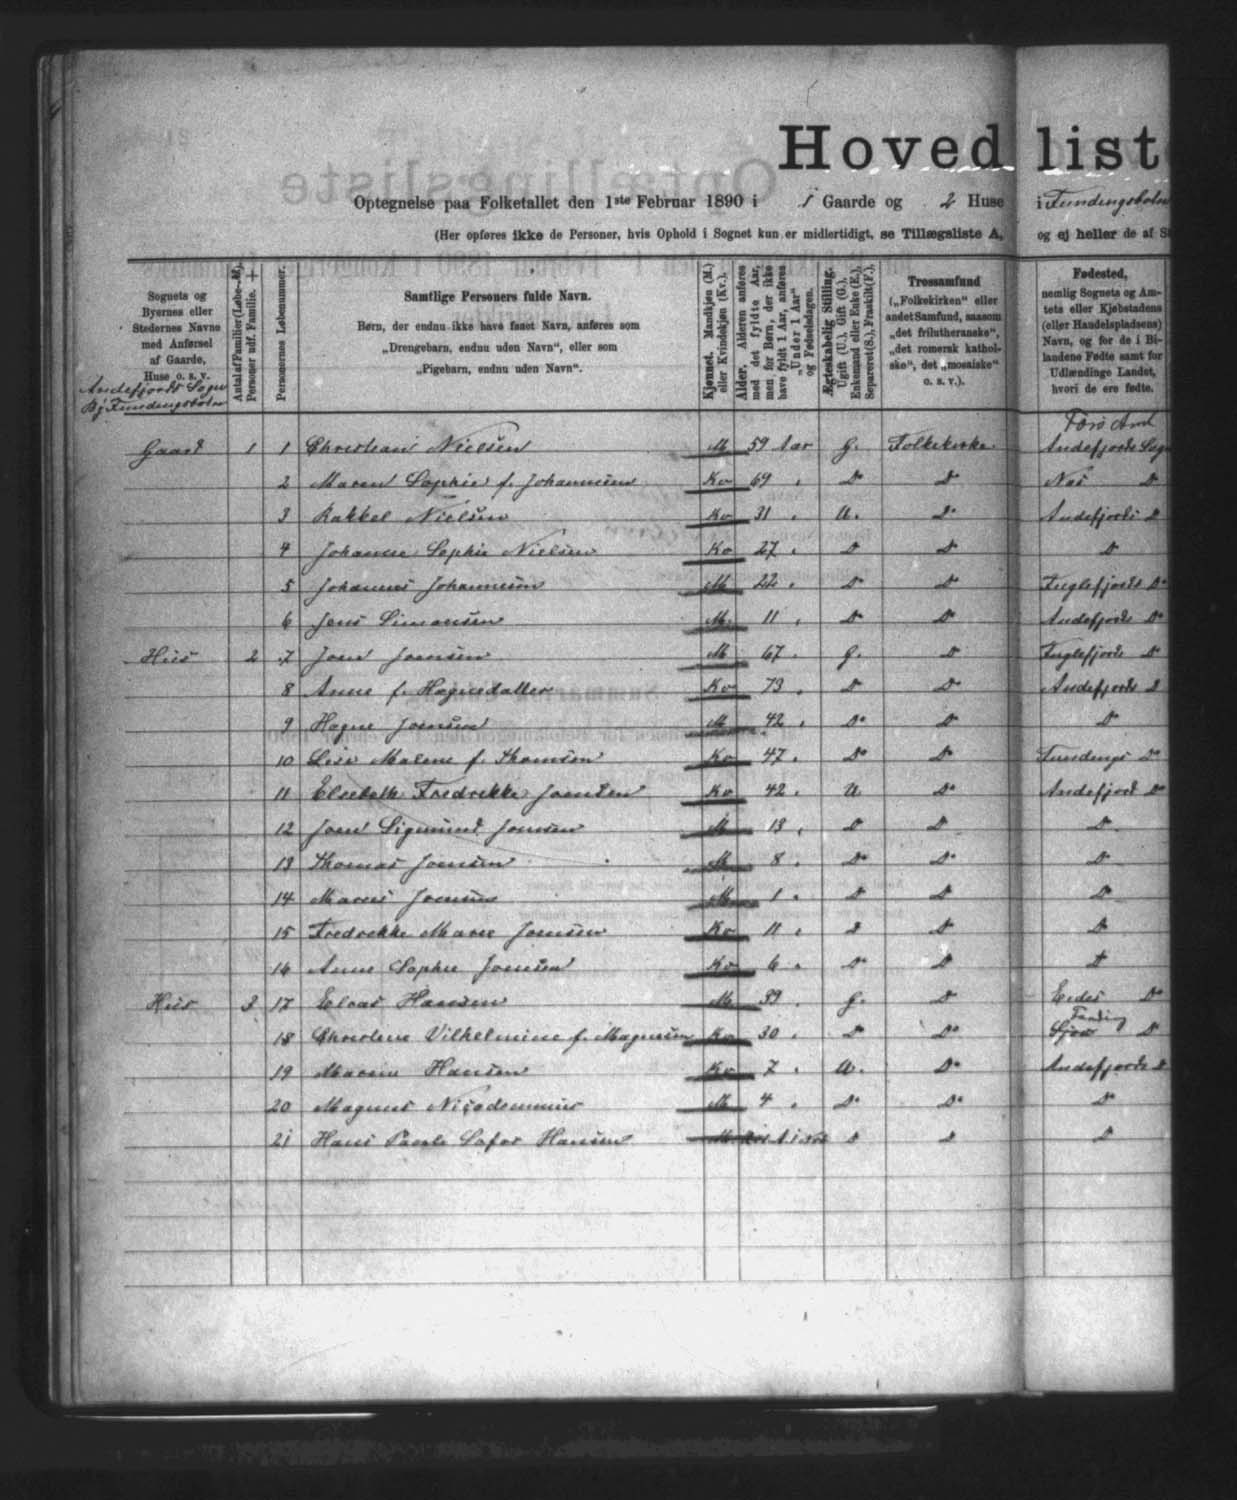 Hovedlist
Optegnelse paa Folketallet den 1ste Februar 1890 i 1 Gaarde og 2 Huse i Fundingsbotn
(Her opføres ikke de Personer, hvis Ophold i Sognet kun er midlertidigt, se Tillægsliste A, og ej heller de af S
Sognets og Byernes eller Stedernes Navne med Anførsel af Gaarde, Huse o. s. v.
Antal af Familier (Løbe-№). Personer udf. Familie. +
Personernes Løbenummer.
Samtlige Personers fulde Navn.
Børn, der endnu ikke have faaet Navn, anføres som „Drengebarn, endnu uden Navn", eller som „Pigebarn, endnu uden Navn".
Kjønnet. Mandkjøn (M.) eller Kvindekjøn (Kv.).
Alder. Alderen anføres med det fyldte Aar, men for Børn, der ikke have fyldt 1 Aar, anføres „Under 1 Aar" og Fødselsdagen.
Ægteskabelig Stilling. Ugift (U.), Gift (G.), Enkemand eller Enke (E.), Separeret (S.), Fraskilt (F.).
Trossamfund („Folkekirken" eller andet Samfund, saasom „det frilutheranske", „det romersk katholske", det „mosaiske" o. s. v.).
Fødested, nemlig Sognets og Amtets eller Kjøbstadens (eller Handelspladsens) Navn, og for de i Bilandene Fødte samt for Udlændinge Landet, hvori de ere fødte.
Andefjords Sogn
By Fundingsbotn
Færø Amt
Gaard 1 1 Christian Nielsen M 59 Aar G. Folkekirke Andefjords Sogn
2 Maren Sophie f. Johannesen Kv 69 D D Næs D
3 Rakkel Nielsen Kv 31 U. D Andefjords D
4 Johanne Sophie Nielsen Kv 27 D D D
5 Johannes Johannesen M 22 D D Fuglefjords D
6 Jens Simonsen M. 11 D D Andefjords D
Hus 2 7 Joen Joensen M 67 G. D Fuglefjords D
8 Anne f. Hagnesdatter Kv 73 D D Andefjords D
9 Hagne Joensen M 42 D D D
10 Malene f. Thomsen Kv 47 D D Fundings D
11 Elsebeth Fredrekke Joensen Kv 42 U D Andefjord D
12 Joen Sigmund Joensen M 13 D D D
13 Thomas Joensen M 8 D D D
14 Joensen M 1 D D D
15 Fredrekke Marie Joensen Kv 11 D D D
16 Anne Sophie Joensen Kv 6 D D D
Hus 3 17 Hansen M 39 G. D Eides D
Funding
18 Vilhelmine f. Magnusen Kv 30 D D D
19 Hansen Kv 7 U. D Andefjords D
20 Magnus M 4 D D D
21 Hans Hansen M D D D